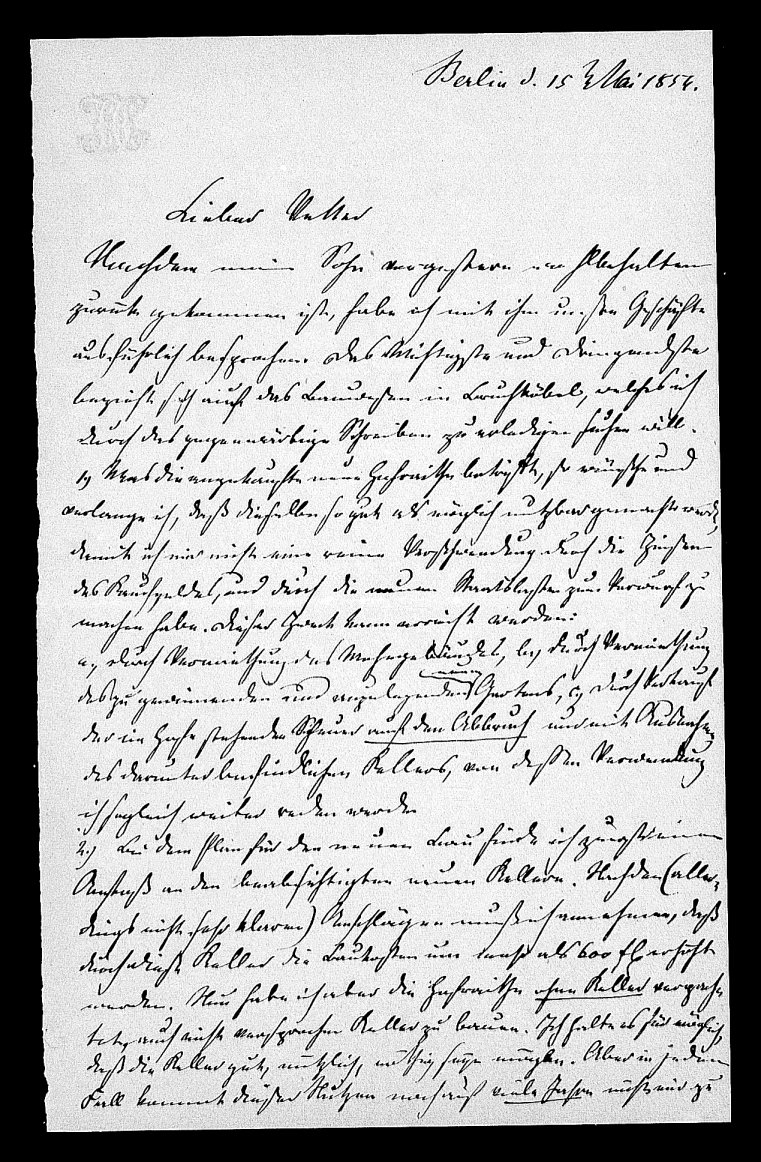 Berlin d. 15 Mai 1854.
Lieber Vetter
Nachdem mein Sohn vorgestern wohlbehalten
zurück gekommen ist, habe ich mit ihm unsre Geschäfte
ausführlich besprochen. Das Wichtigste und Dringendste
bezieht sich auf das Bauwesen in Bruchköbel, welches ich
durch das gegenwärtige Schreiben zu erledigen suchen will.
1) Was die angekaufte neue Hofraithe betrifft, so wünsche und
verlange ich, daß dieselbe so gut als möglich nutzbar gemacht werde,
damit ich mir nicht eine reine Verschwendung durch die Zinsen
des Kaufgeldes, und durch die neuen Staatslasten zum Vorwurf zu
machen habe. Dieser Zweck kann erreicht werden:
a, durch Vermiethung des Wohngebäudes, b, durch Vermiethung
des zu gewinnenden und anzulegenden neuen Gartens, c, durch Verkauf
der im Hofe stehenden Scheuer auf den Abbruch und mit Ausnahme
des darunter befindlichen Kellers, von dessen Verwendung
ich sogleich weiter reden werde.
2.) Bei dem Plan für den neuen Bau finde ich zuerst einen
Anstoß an den beabsichtigten neuen Kellern. Nach den (aller-
dings nicht sehr klaren) Anschlägen muß ich annehmen, daß
durch diese Keller die Baukosten um mehr als 600 fl. erhöht
werden. Nun habe ich aber die Hofraithe ohne Keller verpach-
tet, auch nicht versprochen Keller zu bauen. Ich halte es für möglich,
daß die Keller gut, nützlich, nöthig seyn mögen. Aber in jedem
Fall kommt dieser Nutzen noch auf viele Jahre nicht mir zu